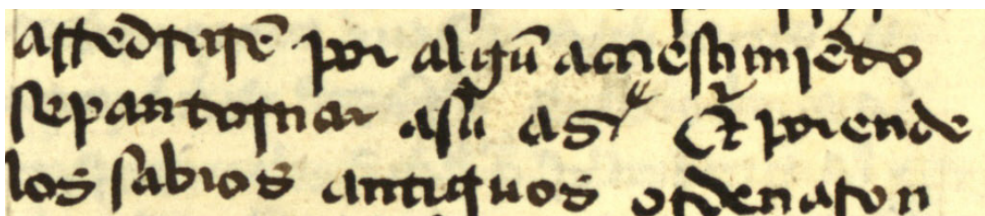 arredrarē por algū acaesçimiēto
sepan tornar asu Et por ende
los sabios antiguos ordenaron